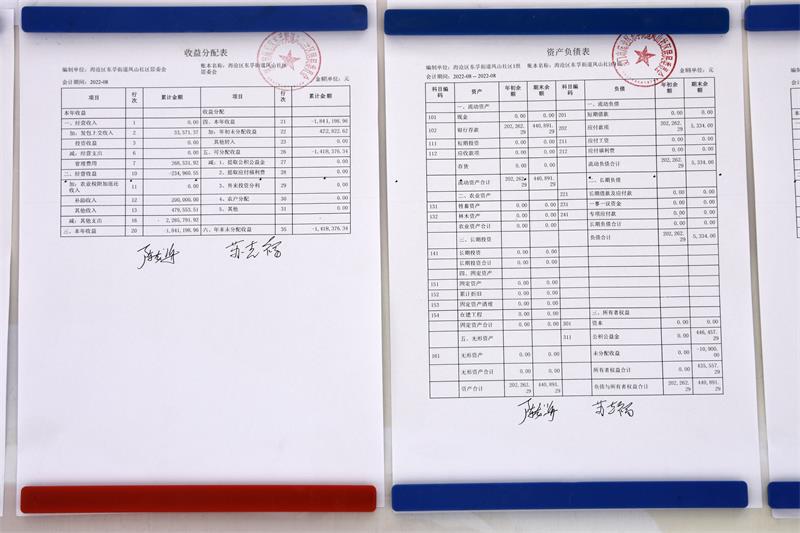 收益分配表
编制单位：海沧区东孚街道凤山社区居委会 账本名称：海沧区东孚街道凤山社区居委会
会计期间：2022-08 金额单位：元
项目 行次 累计金额 项目 行次 累计金额
本年收益 收益分配
一、经营收入 1 0.00 四、本年收益 21 -1,841,198.96
加：发包上交收入 2 33,571.37 加：年初未分配收益 22 422,822.62
投资收益 3 0.00 其他转入 23 0.00
减：经营支出 6 0.00 五、可分配收益 26 -1,418,376.34
管理费用 7 268,531.92 减：1．提取公积公益金 27 0.00
二、经营收益 10 -234,960.55 2．提取应付福利费 28 0.00
加：农业税附加返还收入 11 0.00 3．外来投资分利 29 0.00
补助收入 12 200,000.00 4．农户分配 30 0.00
其他收入 13 479,553.51 5．其他 31 0.00
减：其他支出 16 2,285,791.92
三、本年收益 20 -1,841,198.96 六、年末未分配收益 35 -1,418,376.34
资产负债表
会计期间：2022-08--2022-08 金额单位：元
科目编码 资产 年初余额 期末余额 科目编码 负债 年初余额 期末余额
一、流动资产 一、流动负债
101 现金 0.00 0.00 201 短期借款 0.00 0.00
102 银行存款 202,262.29 440,891.29 202 应付款项 202,262.29 5,334.00
111 短期投资 0.00 0.00 211 应付工资 0.00 0.00
112 应收款项 0.00 0.00 212 应付福利费 0.00 0.00
存货 0.00 0.00 流动负债合计 202,262.29 5,334.00
流动资产合计 202,262.29 440,891.29 二、长期负债
二、农业资产 221 长期借款及应付款 0.00 0.00
131 牲畜资产 0.00 0.00 231 一事一议资金 0.00 0.00
132 林木资产 0.00 0.00 241 专项应付款 0.00 0.00
农业资产合计 0.00 0.00 长期负债合计 0.00 0.00
三、长期投资 负债合计 202,262.29 5,334.00
141 长期投资 0.00 0.00
长期投资合计 0.00 0.00
四、固定资产
151 固定资产 0.00 0.00
152 累计折旧 0.00 0.00
153 固定资产清理 0.00 0.00
154 在建工程 0.00 0.00 三、所有者权益
固定资产合计 0.00 0.00 301 资本 0.00 0.00
五、无形资产 311 公积公益金 0.00 446,457.29
161 无形资产 0.00 0.00 未分配收益 0.00 -10,900.00
无形资产合计 0.00 0.00 所有者权益合计 0.00 435,557.29
资产合计 202,262.29 440,891.29 负债与所有者权益合计 202,262.29 440,891.29